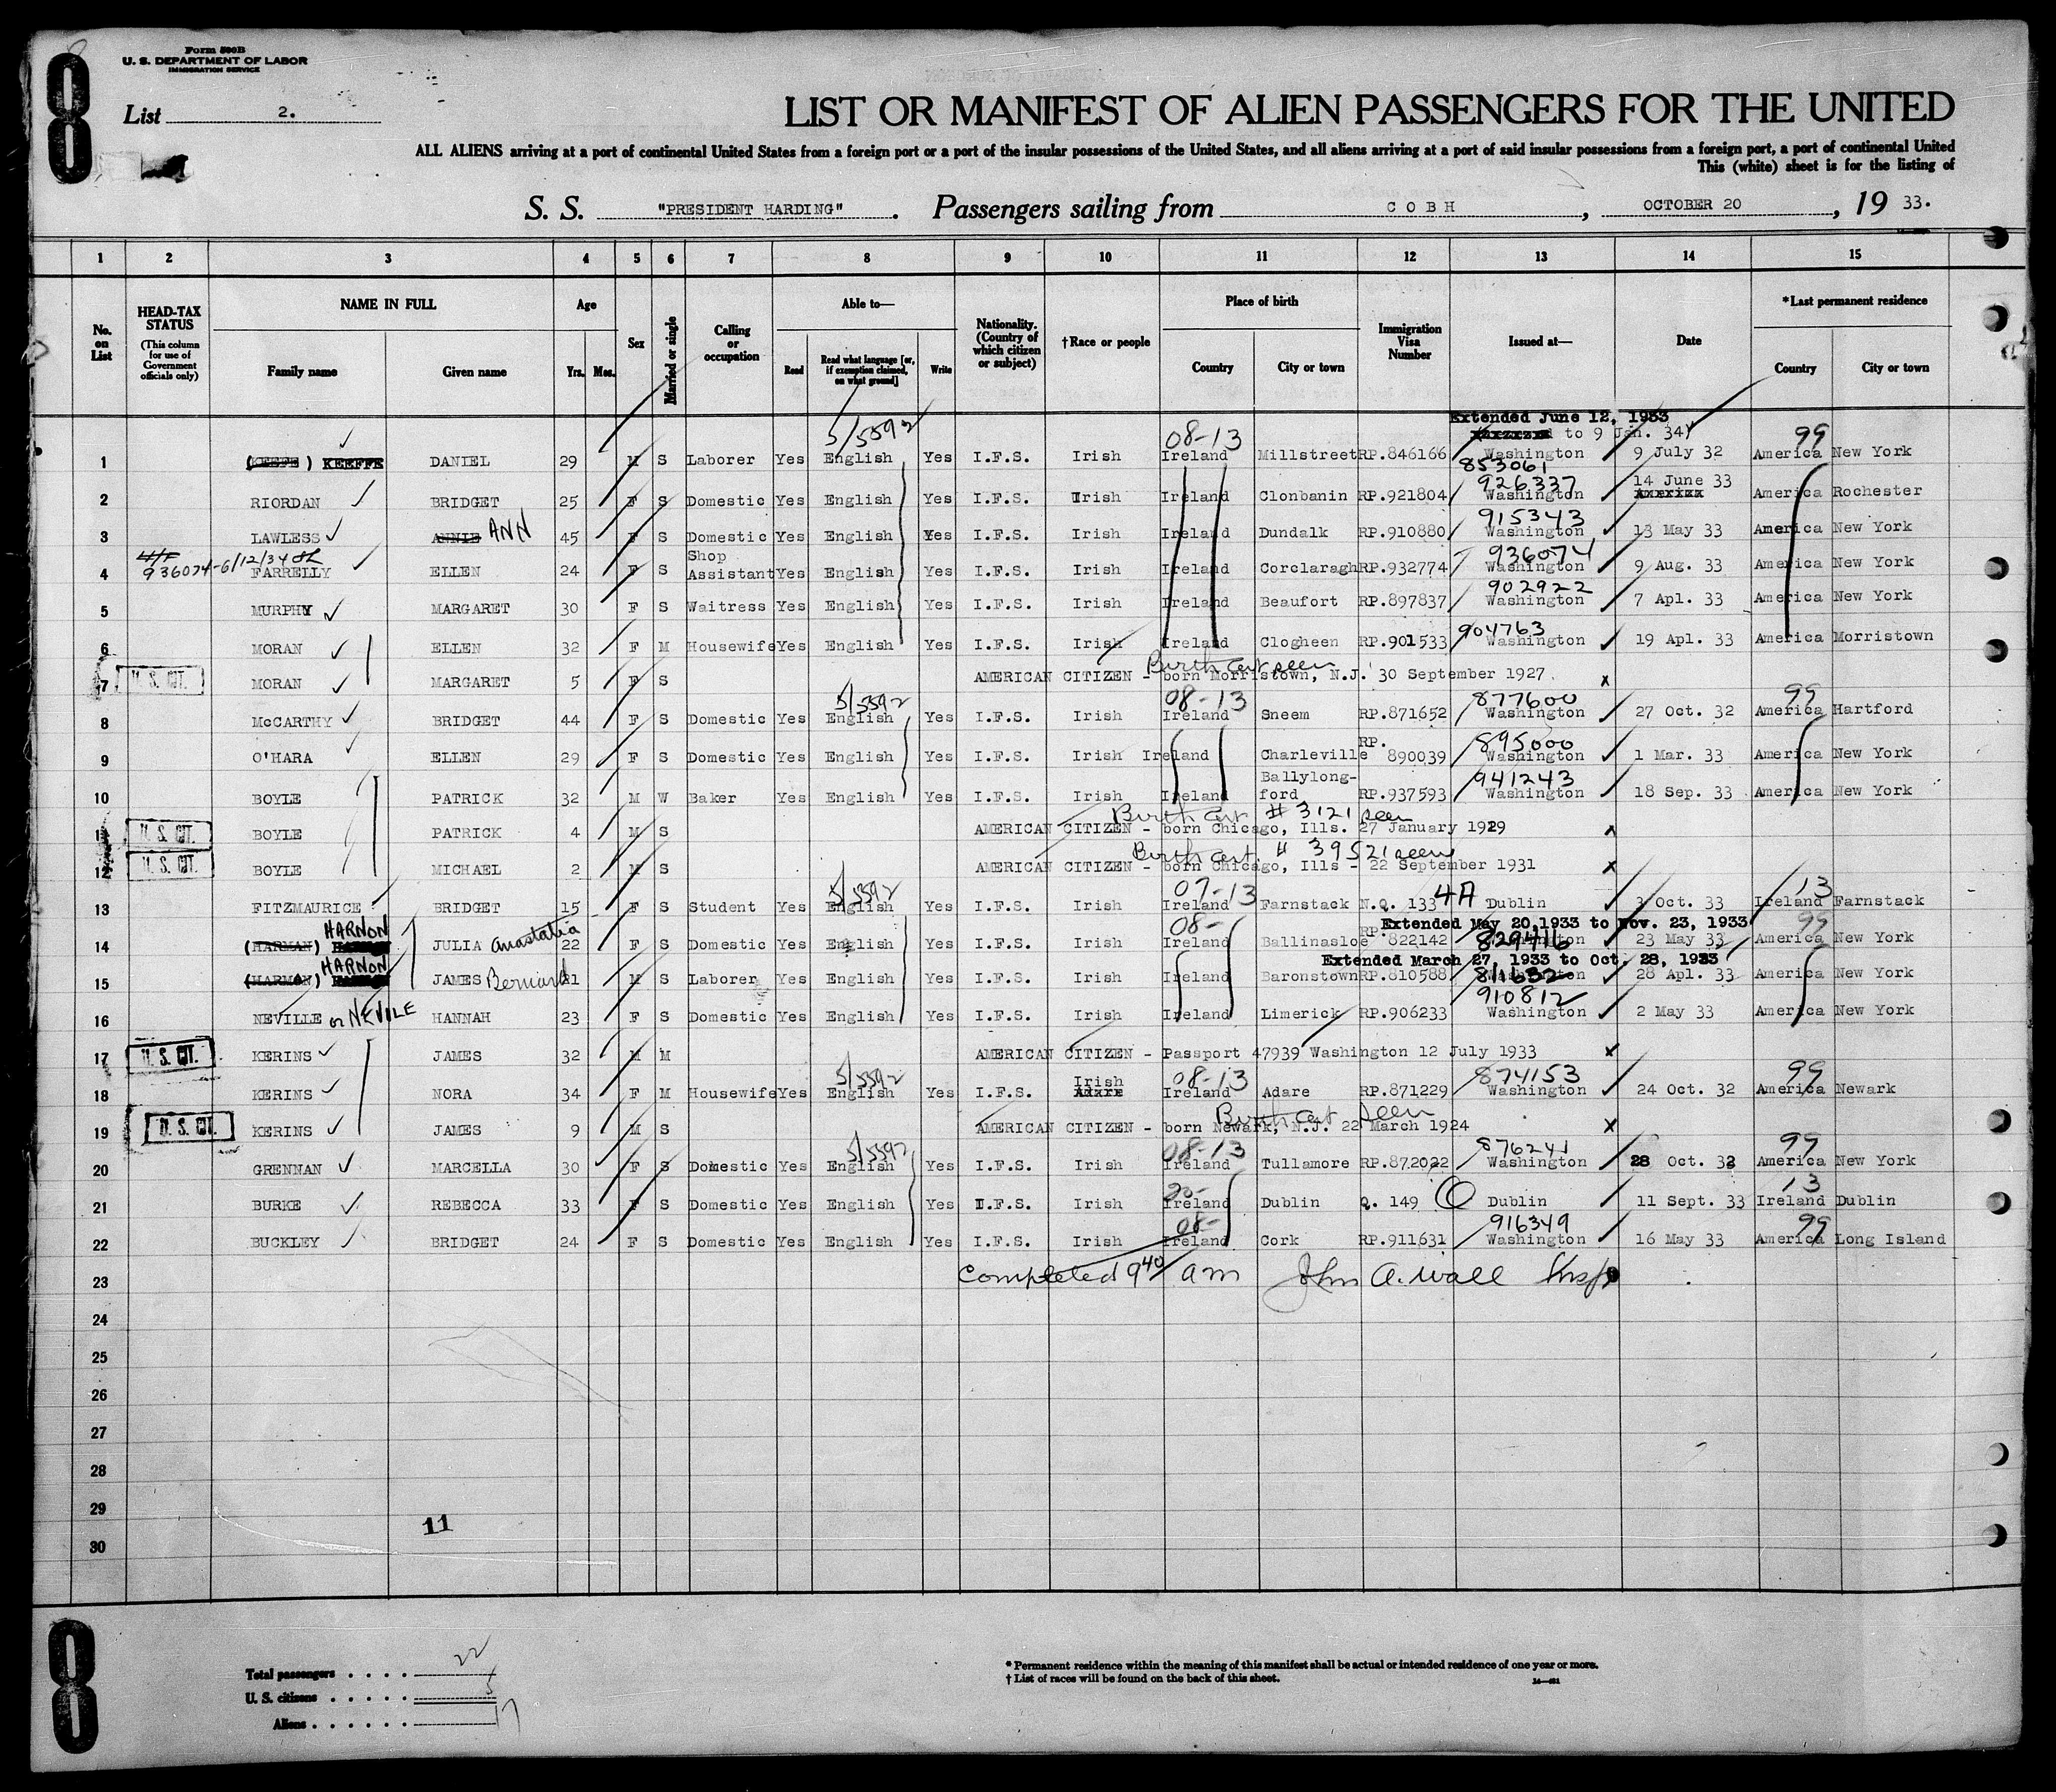 8
Form 500B
U. S. DEPARTMENT OF LABOR
IMMIGRATION SERVICE
List 2.
LIST OR MANIFEST OF ALIEN PASSENGERS FOR THE UNITED
ALL ALIENS arriving at a port of continental United States from a foreign port or a port of the insular possessions of the United States, and all aliens arriving at a port of said insular possessions from a foreign port, a port of continental United
This (white) sheet is for the listing of
S. S. "PRESIDENT HARDING". Passengers sailing from COBH, OCTOBER 20, 19 33.
1 2 3 4 5 6 7 8 9 10 11 12 13 14 15
No. on List
HEAD-TAX STATUS (This column for use of Government officials only)
NAME IN FULL Family name Given name
Age Yrs. Mos.
Sex
Married or single
Calling or occupation
Able to— Read Read what language [or, if exemption claimed, on what ground] Write
Nationality. (Country of which citizen or subject)
†Race or people
Place of birth Country City or town
Immigration Visa Number
Issued at—
Date
*Last permanent residence Country City or town
Extended June 12, 1933
5/5592 08-13 to 9 Jan. 34 99
1 (KEEFE) KEEFFE DANIEL 29 M S Laborer Yes English Yes I.F.S. Irish Ireland Millstreet RP.846166 Washington 9 July 32 America New York
853061
926337 14 June 33
2 RIORDAN BRIDGET 25 F S Domestic Yes English Yes I.F.S. Irish Ireland Clonbanin RP.921804 Washington America Rochester
915343
3 LAWLESS ANNIE ANN 45 F S Domestic Yes English Yes I.F.S. Irish Ireland Dundalk RP.910880 Washington 13 May 33 America New York
936074-6/12/34 Shop 936074
4 FARRELLY ELLEN 24 F S Assistant Yes English Yes I.F.S. Irish Ireland Corclaragh RP.932774 Washington 9 Aug. 33 America New York
902922
5 MURPHY MARGARET 30 F S Waitress Yes English Yes I.F.S. Irish Ireland Beaufort RP.897837 Washington 7 Apl. 33 America New York
904763
6 MORAN ELLEN 32 F M Housewife Yes English Yes I.F.S. Irish Ireland Clogheen RP.901533 Washington 19 Apl. 33 America Morristown
Birth cert seen
7 U. S. CIT. MORAN MARGARET 5 F S AMERICAN CITIZEN - born Morristown, N.J. 30 September 1927 x
5/5592 08-13 877600 99
8 McCARTHY BRIDGET 44 F S Domestic Yes English Yes I.F.S. Irish Ireland Sneem RP.871652 Washington 27 Oct. 32 America Hartford
RP. 895000
9 O'HARA ELLEN 29 F S Domestic Yes English Yes I.F.S. Irish Ireland Charleville 890039 Washington 1 Mar. 33 America New York
Ballylong- 941243
10 BOYLE PATRICK 32 M W Baker Yes English Yes I.F.S. Irish Ireland ford RP.937593 Washington 18 Sep. 33 America New York
Birth cert # 3121 seen
11 U. S. CIT. BOYLE PATRICK 4 M S AMERICAN CITIZEN - born Chicago, Ills. 27 January 1929 x
Birth cert. # 39521 seen
12 U. S. CIT. BOYLE MICHAEL 2 M S AMERICAN CITIZEN - born Chicago, Ills - 22 September 1931 x
5/5592 07-13 13
13 FITZMAURICE BRIDGET 15 F S Student Yes English Yes I.F.S. Irish Ireland Farnstack N.Q. 133 4A Dublin 3 Oct. 33 Ireland Farnstack
HARNON 08- RP. Extended May 20,1933 to Nov. 23, 1933 99
14 (HARMAN) JULIA Anastatia 22 F S Domestic Yes English Yes I.F.S. Irish Ireland Ballinasloe 822142 829416 Washington 23 May 33 America New York
HARNON Extended March 27, 1933 to Oct. 28, 1933
15 (HARMAN) JAMES Bernard 21 M S Laborer Yes English Yes I.F.S. Irish Ireland Baronstown RP.810588 811632 Washington 28 Apl. 33 America New York
910812
16 NEVILLE or NEVILE HANNAH 23 F S Domestic Yes English Yes I.F.S. Irish Ireland Limerick RP.906233 Washington 2 May 33 America New York
17 U. S. CIT. KERINS JAMES 32 M M AMERICAN CITIZEN - Passport 47939 Washington 12 July 1933 x
5/5592 Irish 08-13 874153 99
18 KERINS NORA 34 F M Housewife Yes English Yes I.F.S. Ireland Adare RP.871229 Washington 24 Oct. 32 America Newark
Birth cert seen
19 U. S. CIT. KERINS JAMES 9 M S AMERICAN CITIZEN - born Newark, N.J. 22 March 1924 x
5/5592 08-13 876241 99
20 GRENNAN MARCELLA 30 F S Domestic Yes English Yes I.F.S. Irish Ireland Tullamore RP.872022 Washington 28 Oct. 32 America New York
20- 13
21 BURKE REBECCA 33 F S Domestic Yes English Yes I.F.S. Irish Ireland Dublin Q. 149 Dublin 11 Sept. 33 Ireland Dublin
08- 916349 99
22 BUCKLEY BRIDGET 24 F S Domestic Yes English Yes I.F.S. Irish Ireland Cork RP.911631 Washington 16 May 33 America Long Island
23 Completed 9 40 am John A. Wall Insp
24
25
26
27
28
29
11
30
8
Total passengers . . . . 22
U. S. citizens . . . . . 5
Aliens . . . . . . 17
* Permanent residence within the meaning of this manifest shall be actual or intended residence of one year or more.
† List of races will be found on the back of this sheet.